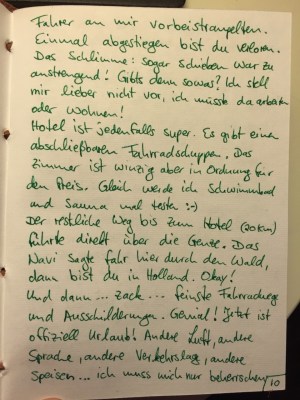 Fahrer an mir vorbeistrampelten.
Einmal abgestiegen bist du verloren.
Das Schlimme: sogar schieben war zu
anstrengend! Gibts denn sowas? Ich stell
mir lieber nicht vor, ich müsste da arbeiten
oder wohnen!
Hotel ist jedenfalls super. Es gibt einen
abschließbaren Fahrradschuppen. Das
Zimmer ist winzig aber in Ordnung für
den Preis. Gleich werde ich Schwimmbad
und Sauna mal testen :-)
Der restliche Weg bis zum Hotel (20km)
führte direkt über die Grenze. Das
Navi sagte fahr hier durch den Wald,
dann bist du in Holland. Okay!
Und dann... zack... feinste Fahrradwege
und Ausschilderungen. Genial! Jetzt ist
offiziell Urlaub! Andere Luft, andere
Sprache, andere Verkehrslage, andere
Speisen... ich muss mich nur beherrschen
10